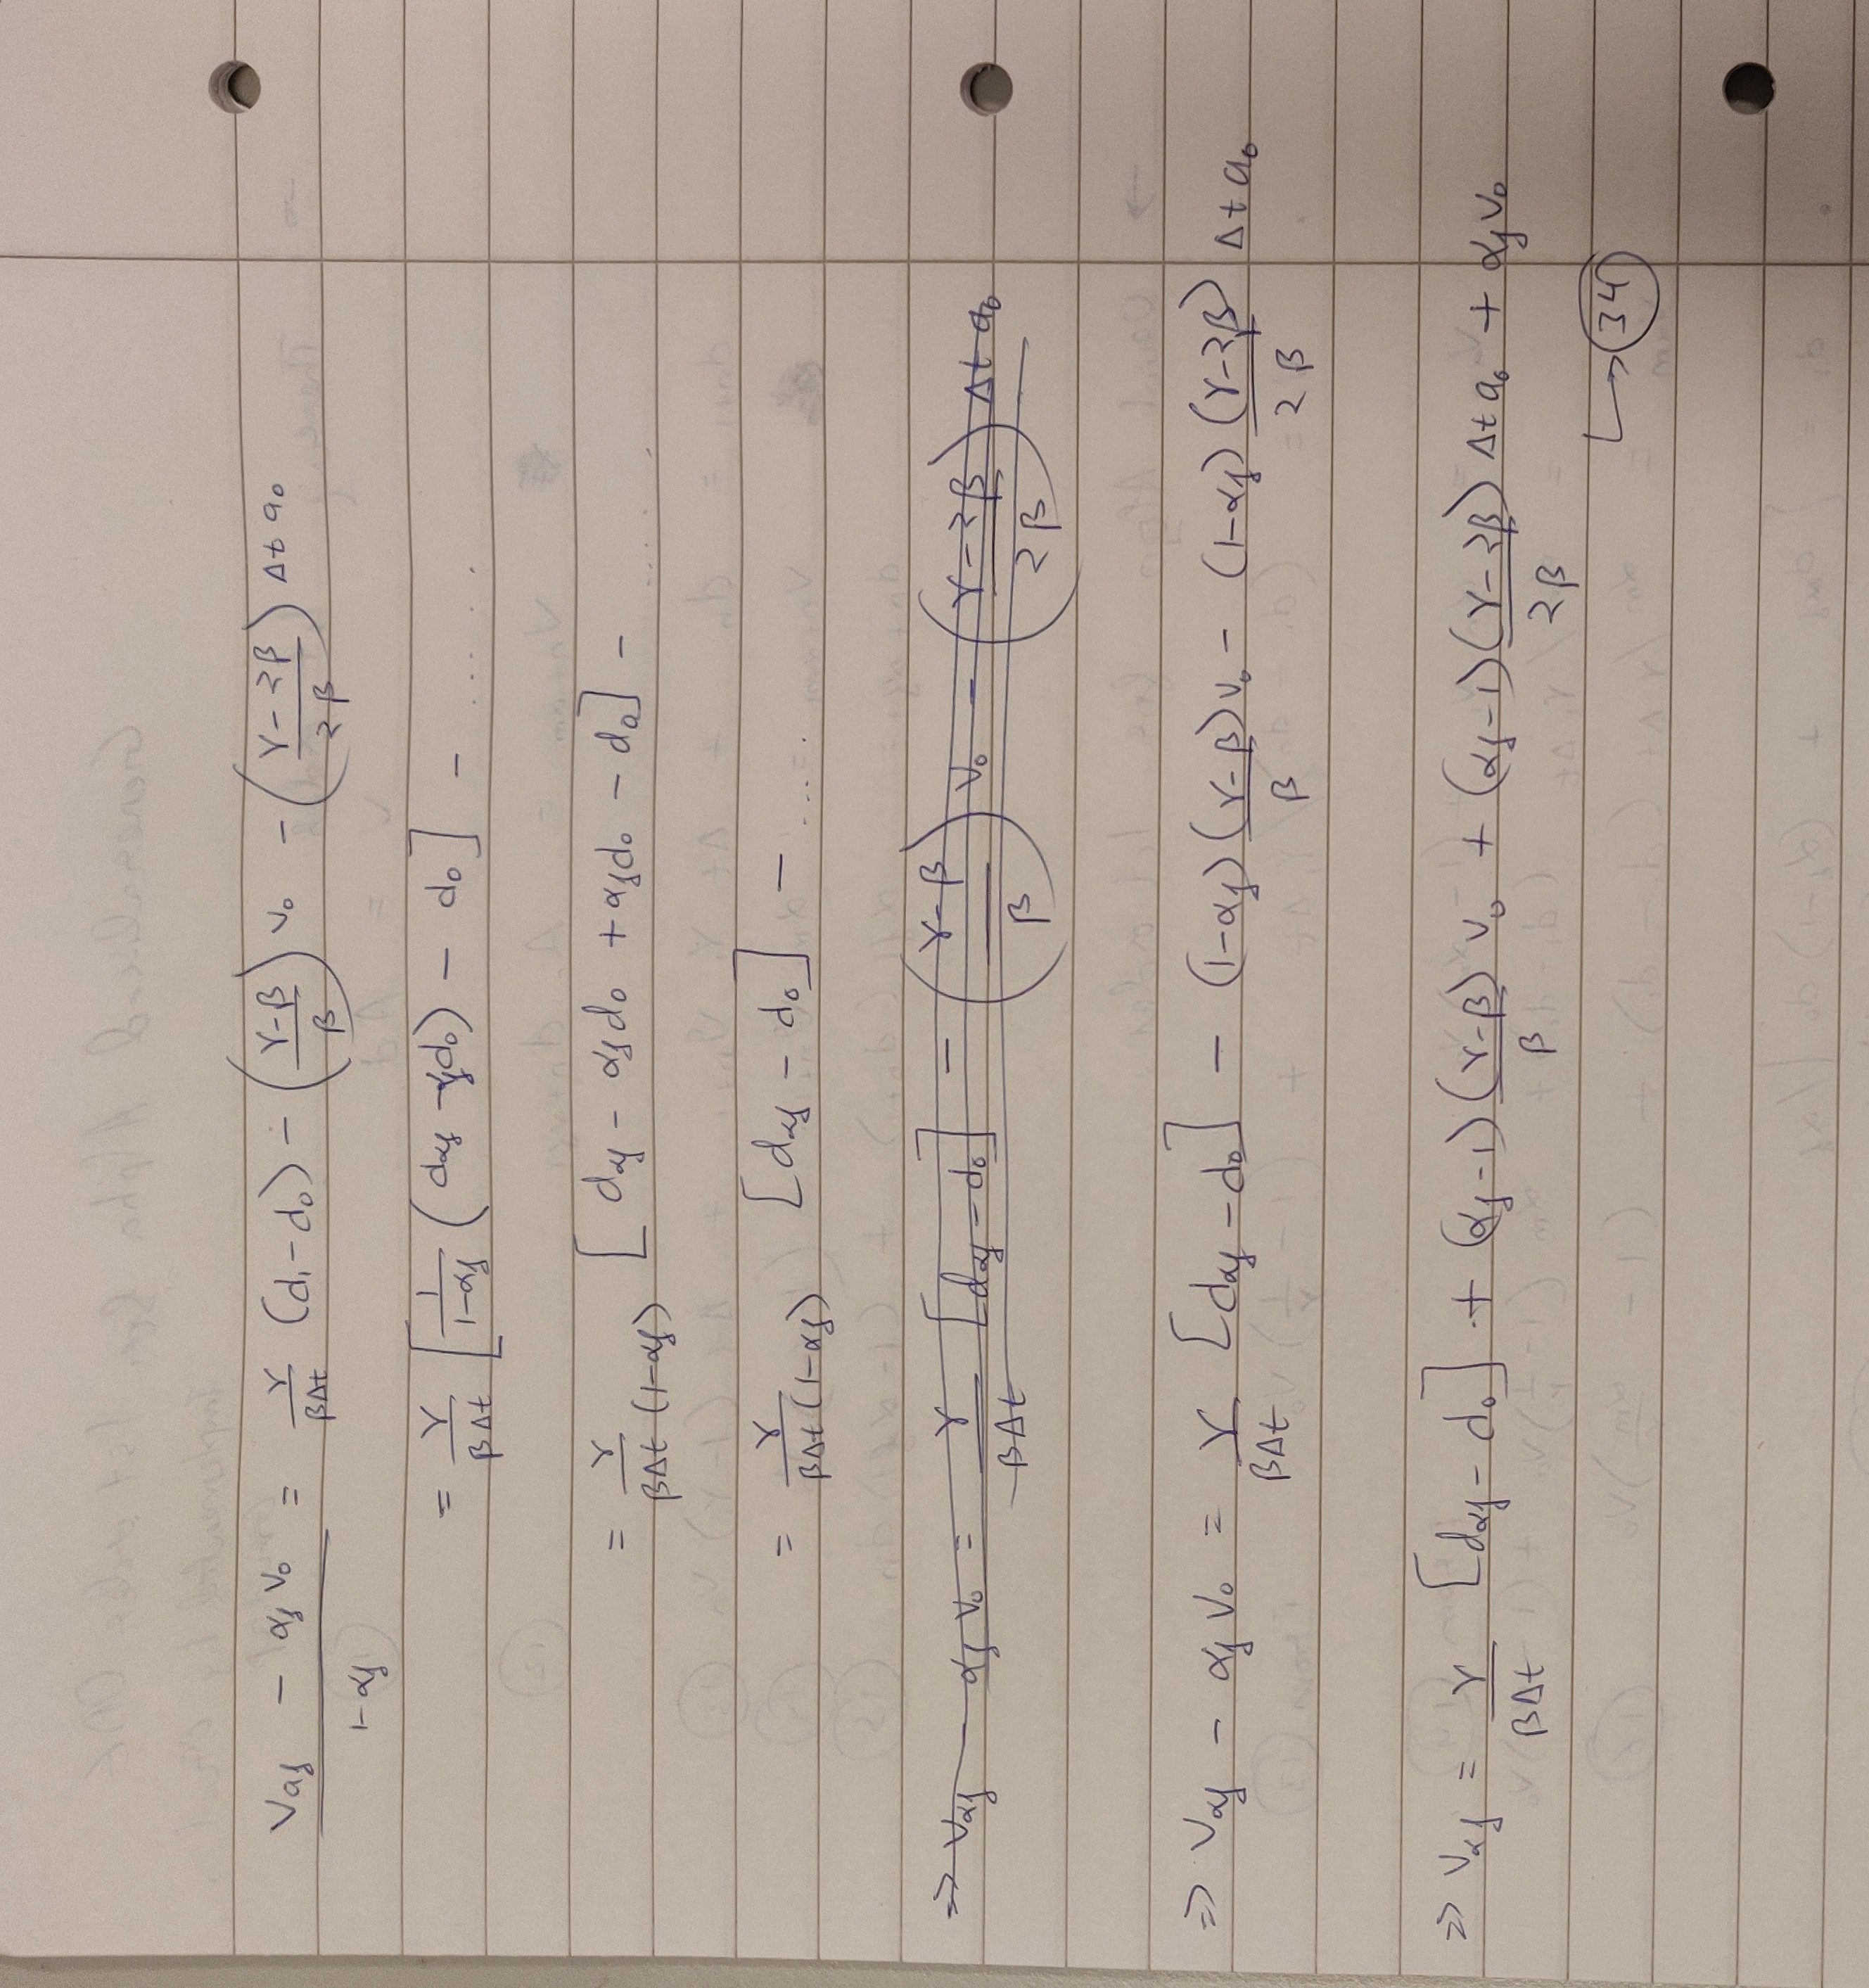 (V_αf - α_f V_0) / (1-α_f) = γ/(βΔt) (d_1 - d_0) - ((γ-β)/β) V_0 - ((γ-2β)/(2β)) Δt a_0
= γ/(βΔt) [1/(1-α_f) (d_αf - α_f d_0) - d_0] - ......
= γ/(βΔt (1-α_f)) [d_αf - α_f d_0 + α_f d_0 - d_0] - ......
= γ/(βΔt (1-α_f)) [d_αf - d_0] - ......
⇒ V_αf - α_f V_0 = γ/(βΔt) [d_αf - d_0] - ((γ-β)/β) V_0 - ((γ-2β)/(2β)) Δt a_0
⇒ V_αf - α_f V_0 = γ/(βΔt) [d_αf - d_0] - (1-α_f) (γ-β)/β V_0 - (1-α_f) (γ-2β)/(2β) Δt a_0
⇒ V_αf = γ/(βΔt) [d_αf - d_0] + (α_f - 1) (γ-β)/β V_0 + (α_f - 1) (γ-2β)/(2β) Δt a_0 + α_f V_0
↳ 34